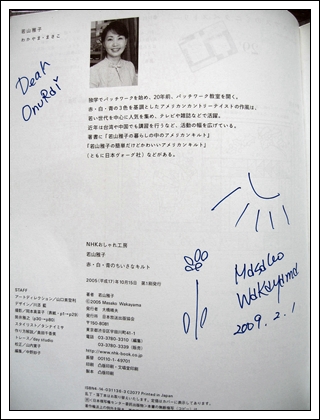 若山雅子
わかやま・まさこ
Dear
OnuRdi
独学でパッチワークを始め、20年前、パッチワーク教室を開く。
赤・白・青の3色を基調としたアメリカンカントリーテイストの作風は、
若い世代を中心に人気を集め、テレビや雑誌などで活躍。
近年は台湾や中国でも講習を行うなど、活動の幅を広げている。
著書に「若山雅子の暮らしの中のアメリカンキルト」
「若山雅子の簡単だけどかわいいアメリカンキルト」
(ともに日本ヴォーグ社)などがある。
NHKおしゃれ工房
若山雅子
赤・白・青のちいさなキルト
2005(平成17)年10月15日 第1刷発行
著者 若山雅子
©2005 Masako Wakayama
発行者 大橋晴夫
発行所 日本放送出版協会
〒150-8081
東京都渋谷区宇田川町41-1
電話 03-3780-3310(編集)
03-3780-3339(販売)
http://www.nhk-book.co.jp
振替 00110-1-49701
印刷 凸版印刷
製本 凸版印刷
STAFF
アートディレクション/山口美登利
デザイン/川添 藍
スタイリスト/タンナイミサ
トレース/day studio
校正/山内寛子
編集/中野妙子
Masako
Wakayama
2009.2.1